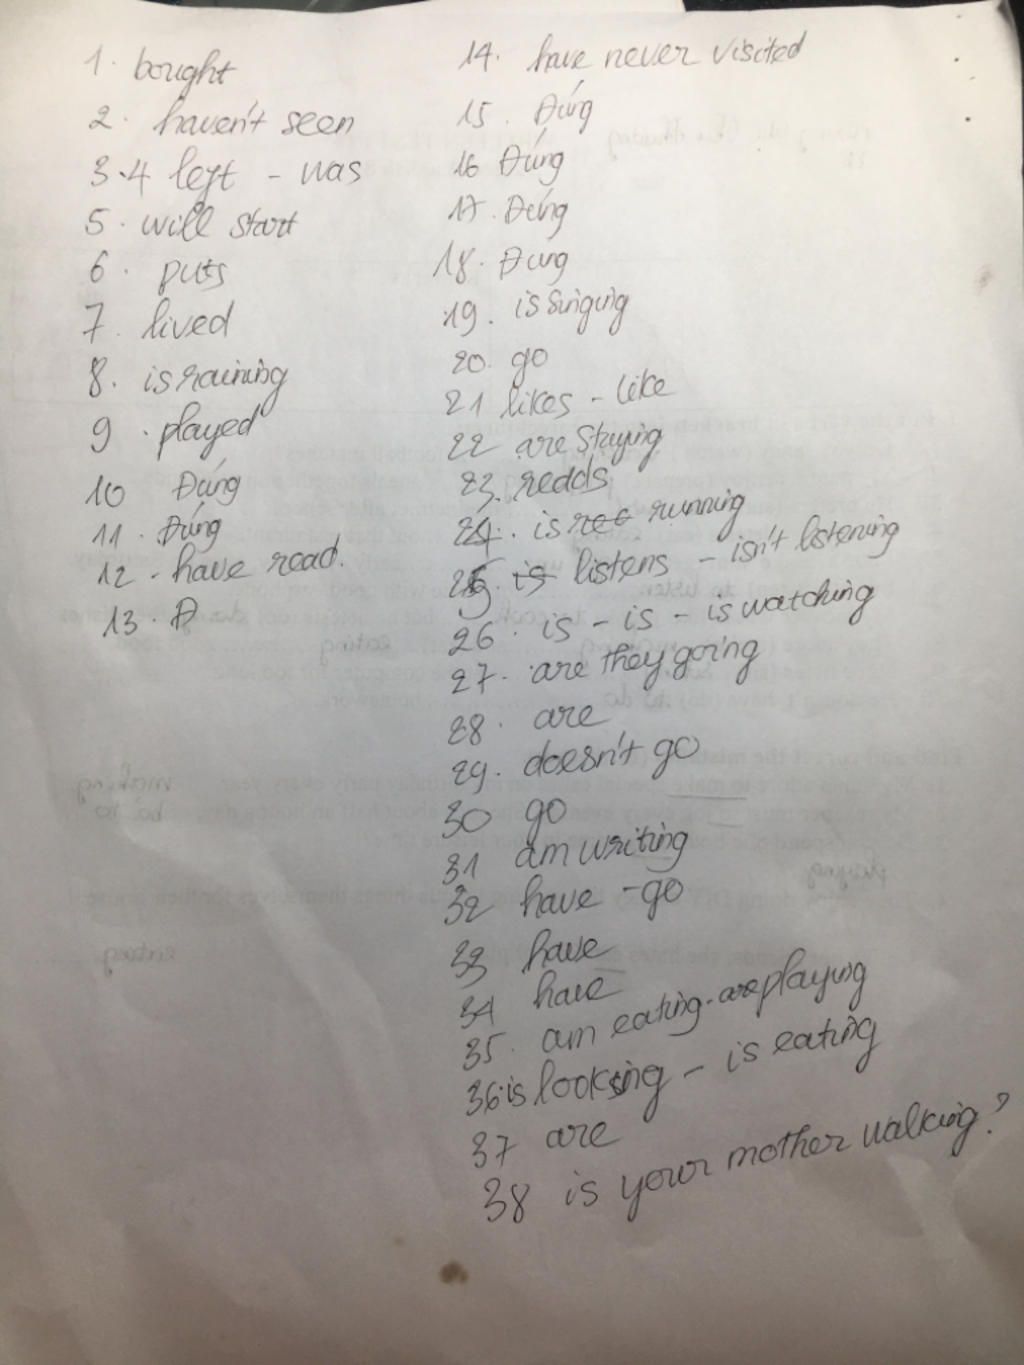 1. bought
2. haven't seen
3.4 left - was
5. will start
6. puts
7. lived
8. is raining
9. played
10 Đúng
11. Đúng
12 - have read.
13. Đ
14. have never visited
15. Đúng
16 Đúng
17. Đúng
18. Đúng
19. is singing
20. go
21 likes - like
22 are staying
23. reads
24. is running
25. is listens - isn't listening
26. is - is - is watching
27. are they going
28. are
29. doesn't go
30 go
31 am writing
32 have - go
33 have
34 have
35. am eating - are playing
36 is looking - is eating
37 are
38 is your mother walking?